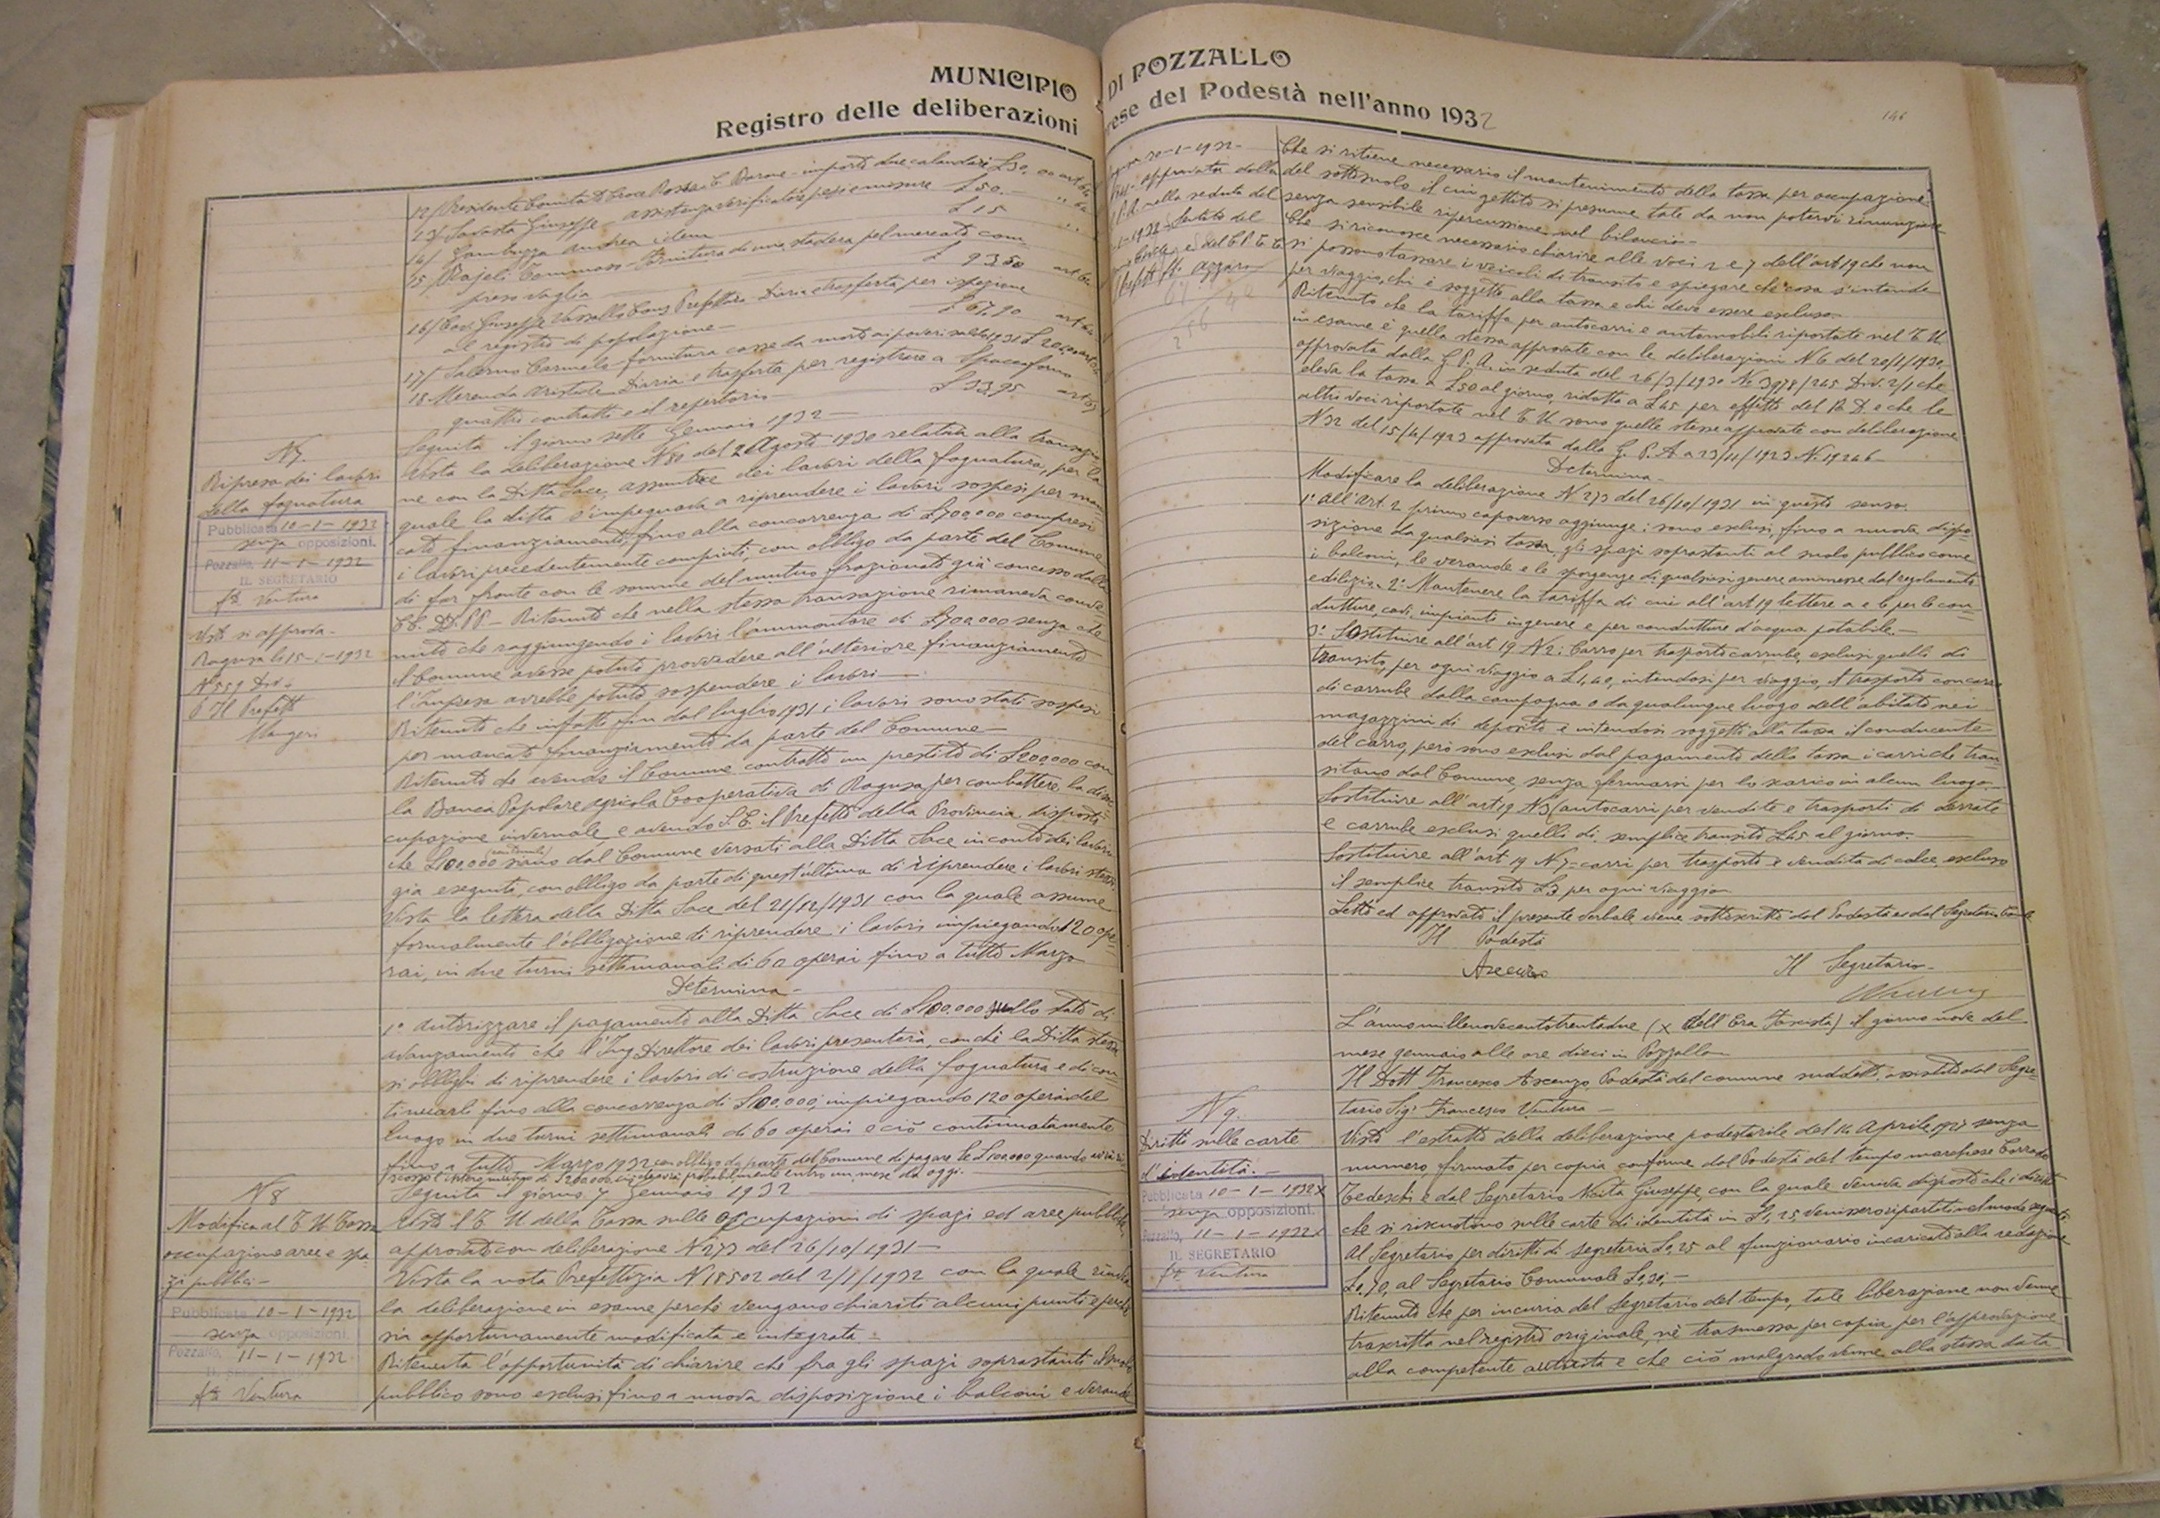 MUNICIPIO DI POZZALLO
Registro delle deliberazioni prese del Podestà nell'anno 1932
146
12/ Presidente Comitato Croce Rossa importo due calendari £ 30,00 art
13/ Giuseppe assistenza verificatore pesi e misure £ 50.-
14/ Gambuzza Andrea idem £ 15
15/ Tommaso - fornitura di una stadera pel mercato com-
preso vaglia £ 93,50
16/ Cav. Giuseppe Vassallo Cons. Prefettura Diaria e trasferta per ispezione
al registro di popolazione - £ 67,90
17/ Salerno Carmelo fornitura casse da morto ai poveri saldo 1931 £
18 Merenda Aristide Diaria e trasferta per registrare a Spaccaforno
quattro contratti e il repertorio - £ 33,95
N 7.
Ripresa dei lavori
della fognatura
Pubblicata 10-1-1932
senza opposizioni.
Pozzallo, 11-1-1932
IL SEGRETARIO
fto Ventura
Visto si approva.
Ragusa li 15-1-1932
N 559 Div.
Il Prefetto
Mangeri
Seguita il giorno sette Gennaio 1932 -
Vista la deliberazione N 80 del 2 Agosto 1930 relativa alla transazio
ne con la Ditta Sace, assuntrice dei lavori della fognatura, per la
quale la ditta s'impegnava a riprendere i lavori sospesi per man
cato finanziamento, fino alla concorrenza di £ 700,000 compresi
i lavori precedentemente compiuti, con obbligo da parte del Comune
di far fronte con le somme del mutuo frazionato già concesso dalla
CC. DD. PP. - Ritenuto che nella stessa transazione rimaneva conve
nuto che raggiungendo i lavori l'ammontare di £ 700.000 senza che
il Comune avesse potuto provvedere all'ulteriore finanziamento
l'Impresa avrebbe potuto sospendere i lavori -
Ritenuto che infatti fin dal luglio 1931 i lavori sono stati sospesi
per mancato finanziamento da parte del Comune -
Ritenuto che avendo il Comune contratto un prestito di £ 200.000 con
la Banca Popolare Agricola Cooperativa di Ragusa per combattere la disoc
cupazione invernale e avendo S. E. il Prefetto della Provincia disposto
che £ 100.000 (centomila) siano dal Comune versati alla Ditta Sace in conto dei lavori
già eseguiti, con obbligo da parte di quest'ultima di riprendere i lavori stessi.
Vista la lettera della Ditta Sace del 21/12/1931 con la quale assume
formalmente l'obbligazione di riprendere i lavori impiegando 120 ope
rai, in due turni settimanali di 60 operai fino a tutto Marzo
Determina -
1° Autorizzare il pagamento alla Ditta Sace di £ 100.000 sullo stato di
avanzamento che l'Ing Direttore dei lavori presenterà, con che la Ditta stessa
si obblighi di riprendere i lavori di costruzione della fognatura e di con
tinuarli fino alla concorrenza di £ 100.000; impiegando 120 operai del
luogo in due turni settimanali di 60 operai e ciò continuatamente
fino a tutto Marzo 1932 con obbligo da parte del Comune di pagare le £ 100.000 quando avrà ri
scosso l'intero mutuo di £ 200.000 probabilmente entro un mese da oggi.
N 8
Modifica al T. U. Tassa
occupazione aree e spa
zi pubblici -
Pubblicata 10-1-1932
senza opposizioni.
Pozzallo, 11-1-1932
fto Ventura
Seguita il giorno 7 Gennaio 1932
Visto l T. U della Tassa sulle occupazioni di spazi ed aree pubbliche
approvato con deliberazione N 273 del 26/10/1931 -
Vista la nota Prefettizia N 18502 del 2/1/1932 con la quale rinvia
la deliberazione in esame perchè vengano chiariti alcuni punti e perchè
sia opportunamente modificata e integrata -
Ritenuta l'opportunità di chiarire che fra gli spazi soprastanti il suolo
pubblico sono esclusi fino a nuova disposizione i balconi e verande
Ragusa 20-1-1932 -
approvata dalla
G.P.A. nella seduta del
Che si ritiene necessario il mantenimento della tassa per occupazione
del sottosuolo il cui gettito si presume tale da non potervi rinunziare
senza sensibile ripercussione nel bilancio -
Che si riconosce necessario chiarire alle voci 2 e 7 dell'art 19 che non
si possono tassare i veicoli di transito e spiegare che cosa s'intende
per viaggio, chi è soggetto alla tassa e chi deve essere escluso.
Ritenuto che la tariffa per autocarri e automobili riportate nel T. U.
in esame è quella stessa approvata con le deliberazioni N 6 del 20/1/1930,
approvata dalla G. P. A. in seduta del 26/3/1930 N 3978/265 Div. 2/1 che
eleva la tassa a £ 50 al giorno, ridotta a £ 45 per effetto del R. D. e che le
altre voci riportate nel T. U. sono quelle stesse approvate con deliberazione
N 32 del 15/4/1923 approvata dalla G. P. A a 23/11/1923 N. 19266
Determina -
Modificare la deliberazione N 273 del 26/10/1931 in questo senso.
1° all'art. 2 primo capoverso aggiunge: sono esclusi, fino a nuova dispo
sizione da qualsiasi tassa, gli spazi soprastanti al suolo pubblico come
i balconi, le verande e le sporgenze di qualsiasi genere ammesse dal regolamento
edilizio. 2° Mantenere la tariffa di cui all'art 19 lettere a e b per le con
dutture, cavi, impianti in genere e per condutture d'acqua potabile. -
3° Sostituire all'art 19 N 2: Carro per trasporto carrube, esclusi quelli di
transito, per ogni viaggio a £ 1,40, intendosi per viaggio, il trasporto con carro
di carrube dalla campagna o da qualunque luogo dell'abitato nei
magazzini di deposito e intendosi soggetti alla tassa il conducente
del carro, però sono esclusi dal pagamento della tassa i carri che tran
sitano dal Comune, senza fermarsi per lo scarico in alcun luogo.
Sostituire all'art 19 N 3 (autocarri per vendite e trasporti di derrate
e carrube esclusi quelli di semplice transito £ 45 al giorno. -
Sostituire all'art 19 N 7 - carri per trasporto e vendita di calce escluso
il semplice transito £ 3 per ogni viaggio
Letto ed approvato il presente verbale viene sottoscritto dal Podestà e dal Segretario Com.le
Il Podestà
Ascenzo
Il Segretario -
L'anno millenovecentotrentadue (X dell'Era Fascista) il giorno nove del
mese gennaio alle ore dieci in Pozzallo
Il Dott Francesco Ascenzo Podestà del comune suddetto, assistito dal Segre
tario Sigr Francesco Ventura -
N 9.
Diritti sulle carte
d'identità. -
Pubblicata 10-1-1932 X
senza opposizioni.
Pozzallo, 11-1-1932 X
IL SEGRETARIO
fto Ventura
Visto l'estratto della deliberazione podestarile del 14 Aprile 1927 senza
numero, firmato per copia conforme dal Podestà del tempo marchese Corrado
Tedeschi e dal Segretario Naita Giuseppe, con la quale veniva disposto che i diritti
che si riscuotono sulle carte di identità in £ 1,25, venissero ripartiti nel modo seguente
Al Segretario per diritti di segreteria £ 0,25 al funzionario incaricato della redazione
£ 0,70, al Segretario Comunale £ 0,30; -
Ritenuto che per incuria del Segretario del tempo, tale liberazione non venne
trascritta nel registro originale, nè trasmessa per copia per l'approvazione
alla competente autorità e che ciò malgrado venne alla stessa data